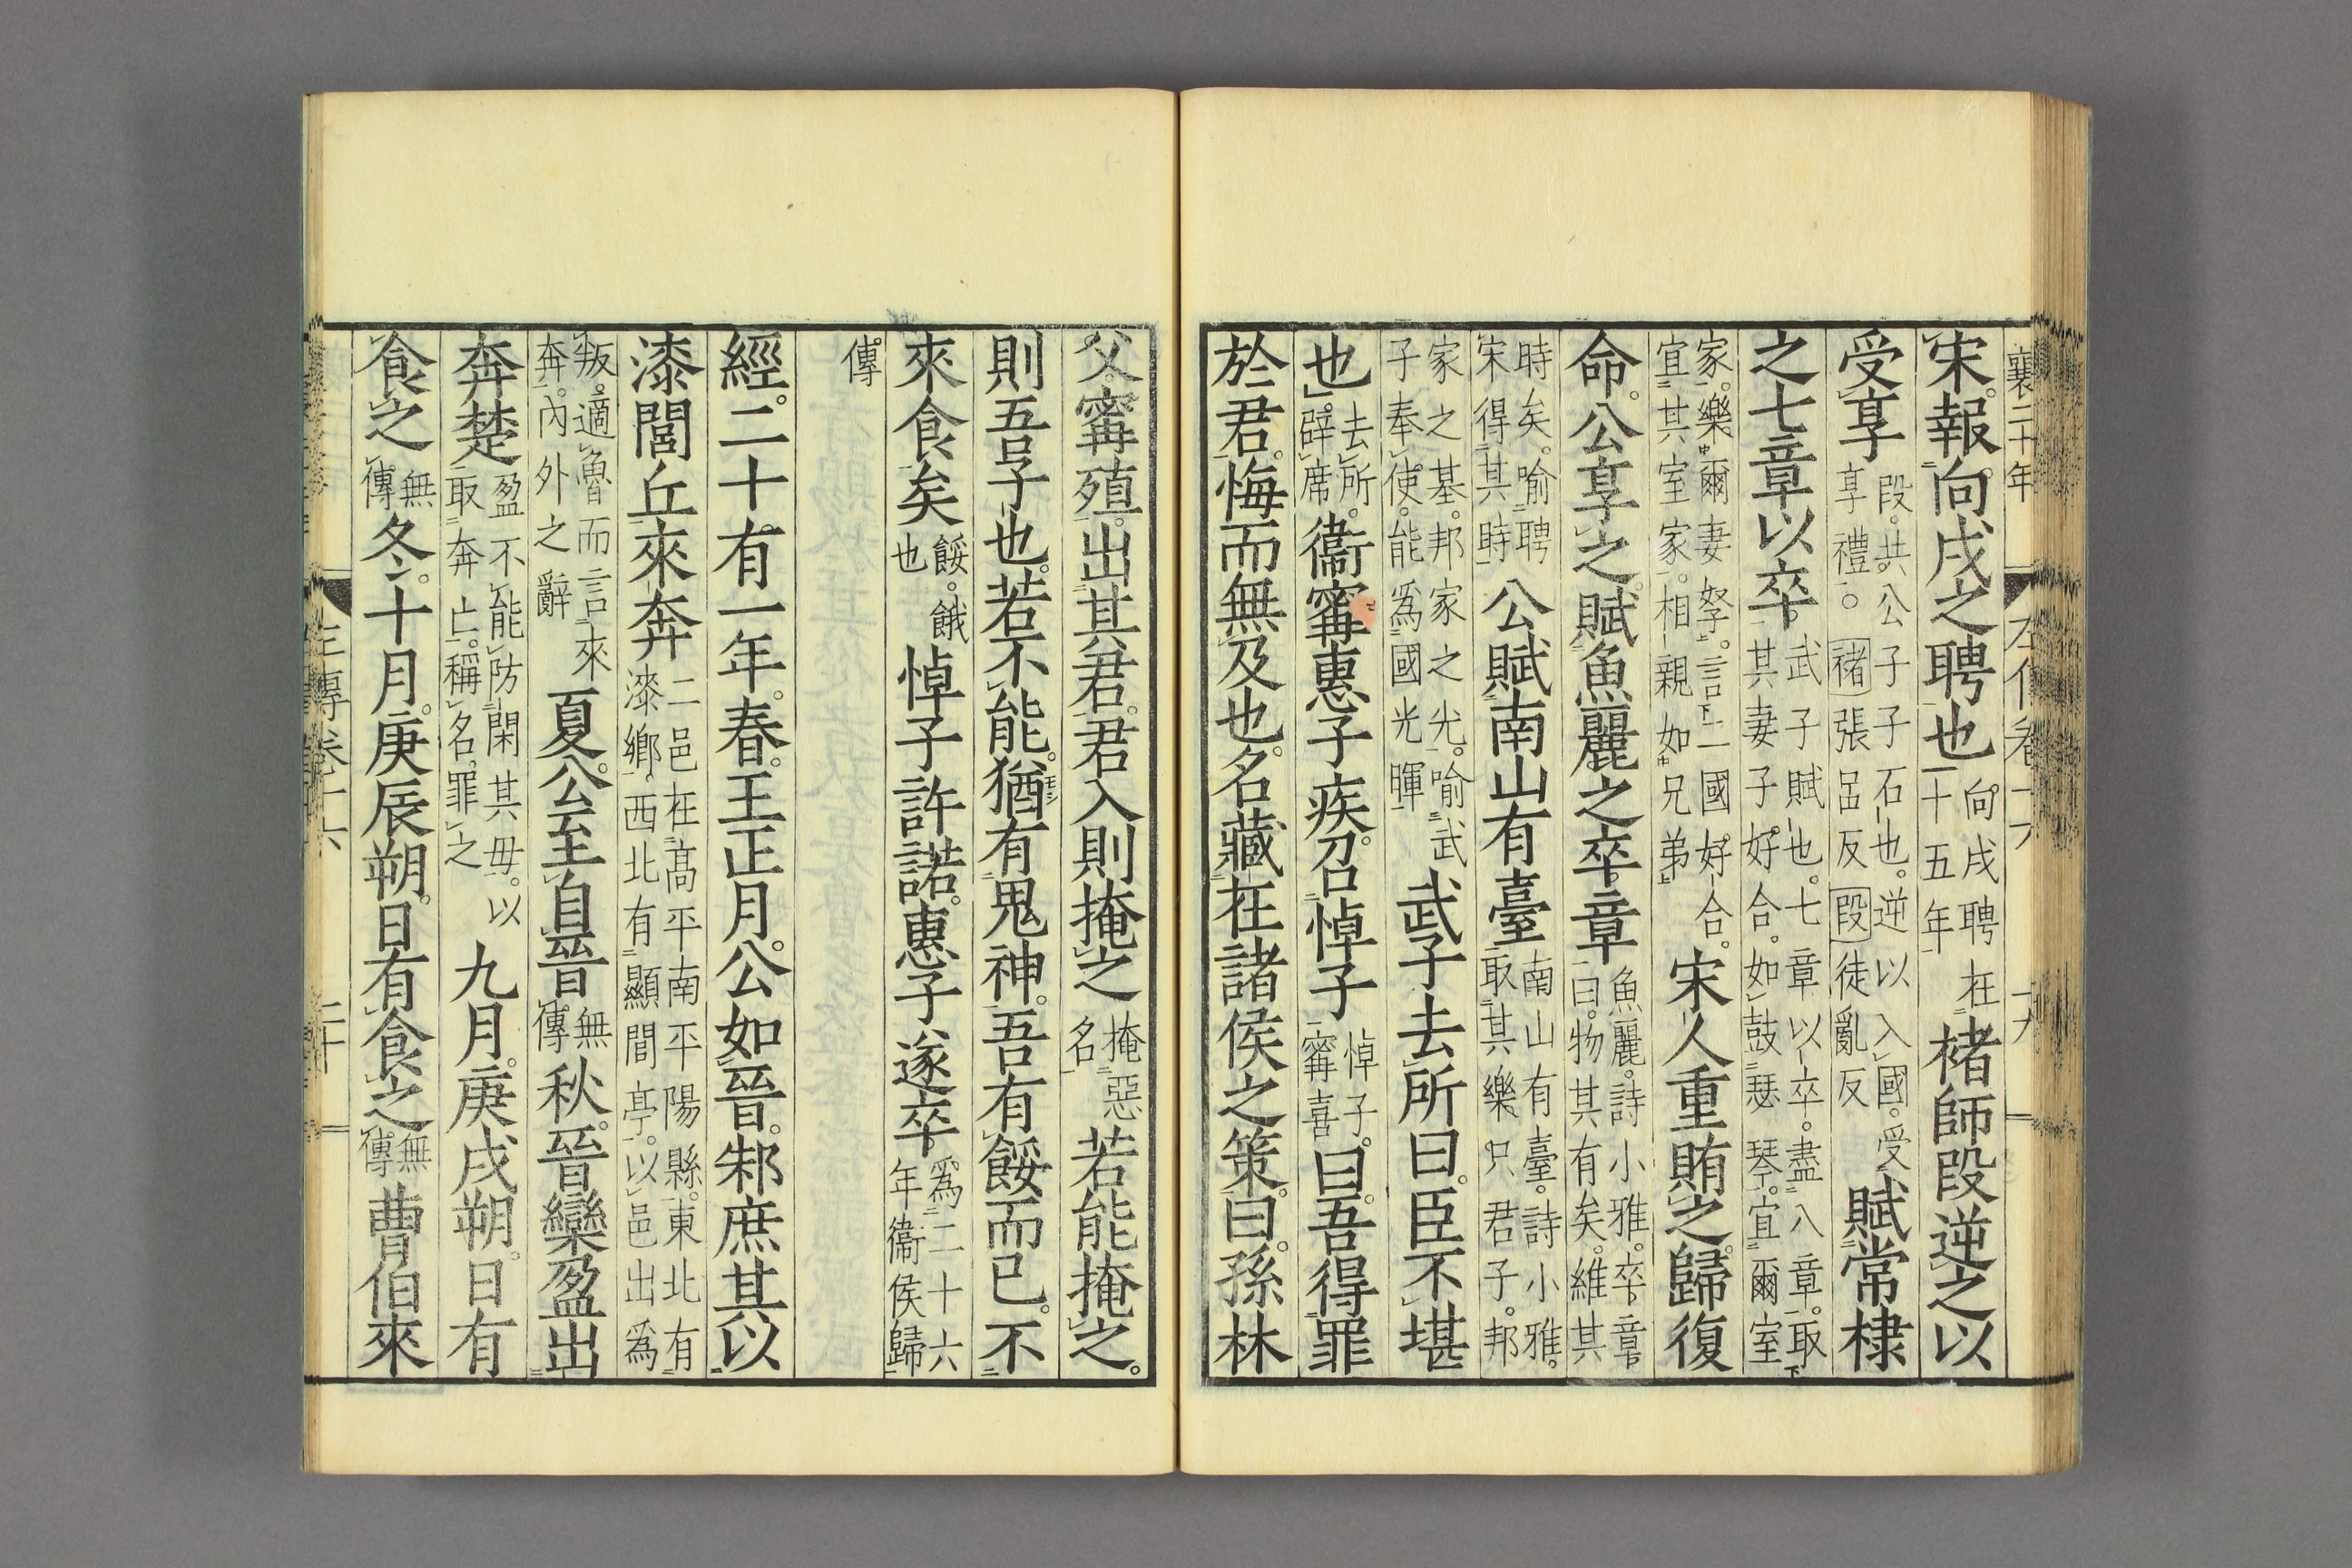 襄二十年
宋。報向戌之聘也。向戌聘在十五年褚師段逆之以
受享段。共公子子石也。逆以入國。受享禮。褚張呂反段徒亂反賦常棣
之七章以卒。武子賦也。七章以卒。盡八章。取其妻子好合。如鼓瑟琴。宜爾室
家。樂爾妻帑。言二國好合。宜其室家。相親如兄弟宋人重賄之。歸復
命。公享之。賦魚麗之卒章魚麗。詩小雅。卒章曰。物其有矣。維其
時矣。喻聘宋得其時公賦南山有臺南山有臺。詩小雅。取其樂只君子。邦
家之基。邦家之光。喻武子奉使。能爲國光暉武子去所曰。臣不堪
也去所。辟席。衞甯惠子疾。召悼子悼子。甯喜曰。吾得罪
於君。悔而無及也。名藏在諸侯之策。曰。孫林
父甯殖。出其君。君入則掩之掩惡名若能掩之。
則吾子也。若不能。猶有鬼神。吾有餒而已。不
來食矣餒。餓也悼子許諾。惠子遂卒。爲二十六年衞侯歸
傳
經。二十有一年。春。王正月。公如晉。邾庶其以
漆閭丘來奔二邑在高平南平陽縣。東北有漆鄉。西北有顯閭亭。以邑出爲
叛。適魯而言來奔。內外之辭夏。公至自晉無傳秋。晉欒盈出
奔楚盈不能防閑其母。以取奔亡。稱名。罪之九月。庚戌朔。日有
食之無傳冬。十月。庚辰朔。日有食之無傳曹伯來